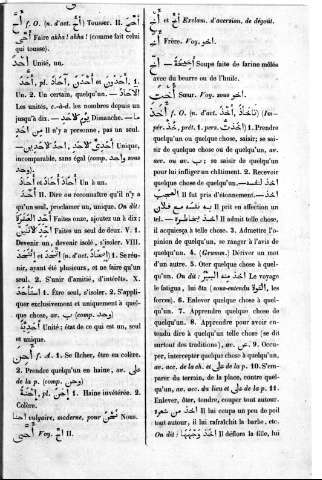 أَحَّ f. O. (n. d'act. أَحّ) Tousser. II.
Faire akha! akha! (comme fait celui
qui tousse).
أَحَد Unité, un.
أَحَد, pl. آحَاد, 1.
Un. 2. Un certain, quelqu'un.
Les unités, c.-à-d. les nombres depuis un
jusqu'à dix. Dimanche.
Il n'y a personne, pas un seul.
Unique,
incomparable, sans égal (comp. وحد et
أُحَاد أُحَاد Un à un.
أَحَّدَ II. Dire ou reconnaître qu'il n'y a
qu'un seul, proclamer, un unique. On dit:
Faites onze, ajoutez un à dix:
Faites un seul de deux. V. 1.
Devenir un, devenir isolé, s'isoler. VIII.
(n. d'act.) 1. Se réu-
nir, ayant été plusieurs, et ne faire qu'un
seul. 2. S'unir d'amitié, d'intérêts. X.
1. Être seul, s'isoler. 2. S'appli-
quer exclusivement et uniquement à quel-
que chose, av. ب (comp. وحد)
Unité; état de ce qui est un, seul
et unique.
أَحِنَ f. A. 1. Se fâcher, être en colère.
2. Prendre quelqu'un en haine, av. على
de la p. (comp. وحن)
إِحْنَة, pl. إِحَن 1. Haine invétérée. 2.
Colère.
vulgaire, moderne, pour نحن Nous.
Voy. II.
أخ et Exclam. d'aversion, de dégoût.
أَخ Frère. Voy. اخو.
Soupe faite de farine mêlée
avec du beurre ou de l'huile.
أُخْت Sœur. Voy. sous اخو.
أَخَذَ f. O. (n. d'act.
prét. 1. pers.) 1. Prendre
quelqu'un ou quelque chose, saisir; se sai-
sir de quelque chose ou de quelqu'un, av.
acc. ou av. ب; se saisir de quelqu'un
pour lui infliger un châtiment. 2. Recevoir
quelque chose de quelqu'un.
il fut pris d'étonnement.
Il prit en affection un
tel. Il admit telle chose,
il acquiesça à telle chose. 3. Admettre l'o-
pinion de quelqu'un, se ranger à l'avis de
quelqu'un. 4. (Gramm.) Dériver un mot
d'un autre. 5. Ôter quelque chose à quel-
qu'un. On dit: Le voyage
le fatigua, lui ôta (sous-entendu les
forces). 6. Enlever quelque chose à quel-
qu'un. 7. Apprendre quelque chose de
quelqu'un. 8. Apprendre pour avoir en-
tendu dire à quelqu'un telle chose (se dit
surtout des traditions), av. عن. 9. Occu-
per, intercepter quelque chose à quelqu'un,
av. acc. de la ch. et على de la p. 10. S'em-
parer du terrain, de la place, contre quel-
qu'un, av. acc. du lieu et على de la p. 11.
Enlever, ôter, tondre, couper tout autour.
أخذ من شعره Il lui coupa un peu de poil
tout autour, il lui rafraîchit la barbe, etc.
On dit: Il déflora la fille, lui